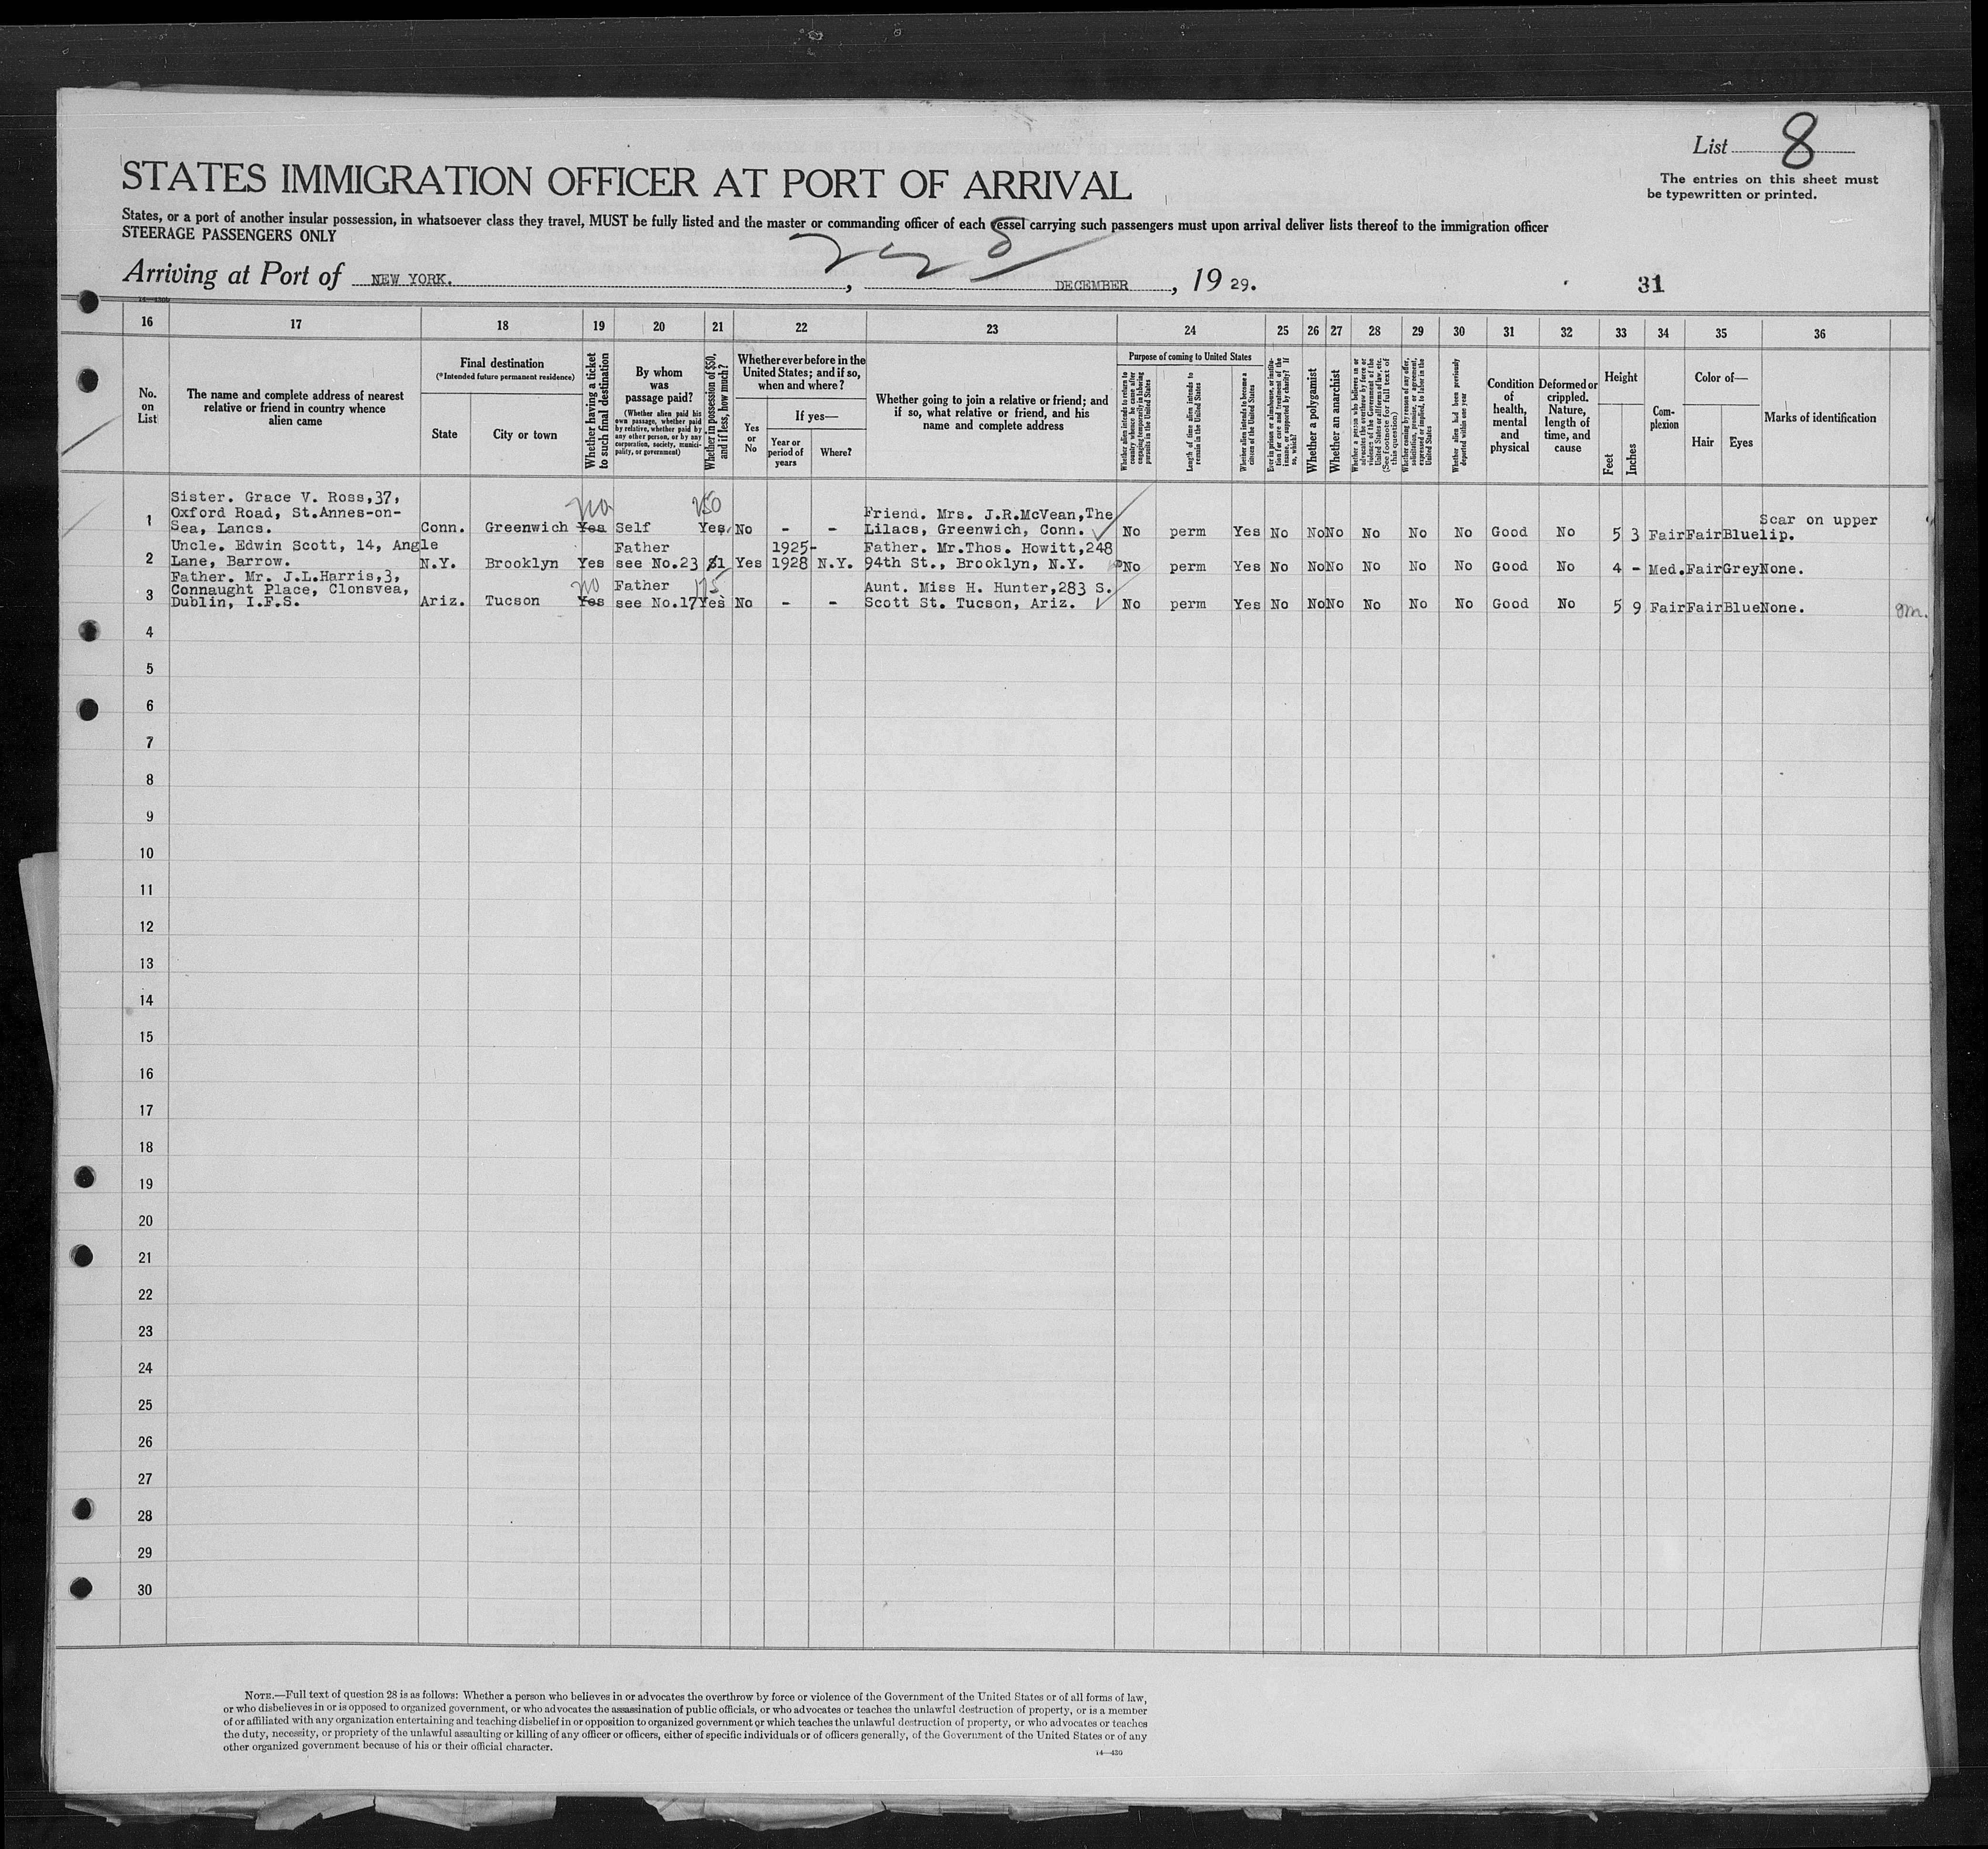 List 8
The entries on this sheet must
be typewritten or printed.
STATES IMMIGRATION OFFICER AT PORT OF ARRIVAL
States, or a port of another insular possession, in whatsoever class they travel, MUST be fully listed and the master or commanding officer of each vessel carrying such passengers must upon arrival deliver lists thereof to the immigration officer
STEERAGE PASSENGERS ONLY
Arriving at Port of NEW YORK. , DECEMBER , 19 29. 31
16 17 18 19 20 21 22 23 24 25 26 27 28 29 30 31 32 33 34 35 36
No.
on
List
The name and complete address of nearest
relative or friend in country whence
alien came
Final destination
(*Intended future permanent residence)
State
City or town
Whether having a ticket
to such final destination
By whom
was
passage paid?
(Whether alien paid his
own passage, whether paid
by relative, whether paid by
any other person, or by any
corporation, society, munici-
pality, or government)
Whether in possession of $50,
and if less, how much?
Whether ever before in the
United States; and if so,
when and where?
Yes
or
No
If yes—
Year or
period of
years
Where?
Whether going to join a relative or friend; and
if so, what relative or friend, and his
name and complete address
Purpose of coming to United States
Whether alien intends to return to
country whence he came after
engaging temporarily in laboring
pursuits in the United States
Length of time alien intends to
remain in the United States
Whether alien intends to become a
citizen of the United States
Ever in prison or almshouse, or institu-
tion for care and treatment of the
insane, or supported by charity? If
so, which?
Whether a polygamist
Whether an anarchist
Whether a person who believes in or
advocates the overthrow by force or
violence of the Government of the
United States or all forms of law, etc.
(See footnote for full text of
this question)
Whether coming by reason of any offer,
solicitation, promise, or agreement,
expressed or implied, to labor in the
United States
Whether alien had been previously
deported within one year
Condition
of
health,
mental
and
physical
Deformed or
crippled.
Nature,
length of
time, and
cause
Height
Feet
Inches
Com-
plexion
Color of—
Hair
Eyes
Marks of identification
Sister. Grace V. Ross,37,
Oxford Road, St.Annes-on-
Sea, Lancs.
1 Conn. Greenwich Yes no Self Yes. 250 No - - Friend. Mrs. J.R.McVean,The
Lilacs, Greenwich, Conn. No perm Yes No No No No No No Good No 5 3 Fair Fair Blue Scar on upper
lip.
Uncle. Edwin Scott, 14, Angle
Lane, Barrow.
2 N.Y. Brooklyn Yes Father
see No.23 $1 Yes 1925-
1928 N.Y. Father. Mr.Thos. Howitt,248
94th St., Brooklyn, N.Y. No perm Yes No No No No No No Good No 4 - Med. Fair Grey None.
Father. Mr. J.L.Harris,3,
Connaught Place, Clonsvea,
Dublin, I.F.S.
3 Ariz. Tucson Yes no Father
see No.17 Yes No - - Aunt. Miss H. Hunter,283 S.
Scott St. Tucson, Ariz. No perm Yes No No No No No No Good No 5 9 Fair Fair Blue None.
4
5
6
7
8
9
10
11
12
13
14
15
16
17
18
19
20
21
22
23
24
25
26
27
28
29
30
NOTE.—Full text of question 28 is as follows: Whether a person who believes in or advocates the overthrow by force or violence of the Government of the United States or of all forms of law,
or who disbelieves in or is opposed to organized government, or who advocates the assassination of public officials, or who advocates or teaches the unlawful destruction of property, or is a member
of or affiliated with any organization entertaining and teaching disbelief in or opposition to organized government or which teaches the unlawful destruction of property, or who advocates or teaches
the duty, necessity, or propriety of the unlawful assaulting or killing of any officer or officers, either of specific individuals or of officers generally, of the Government of the United States or of any
other organized government because of his or their official character.
14—430